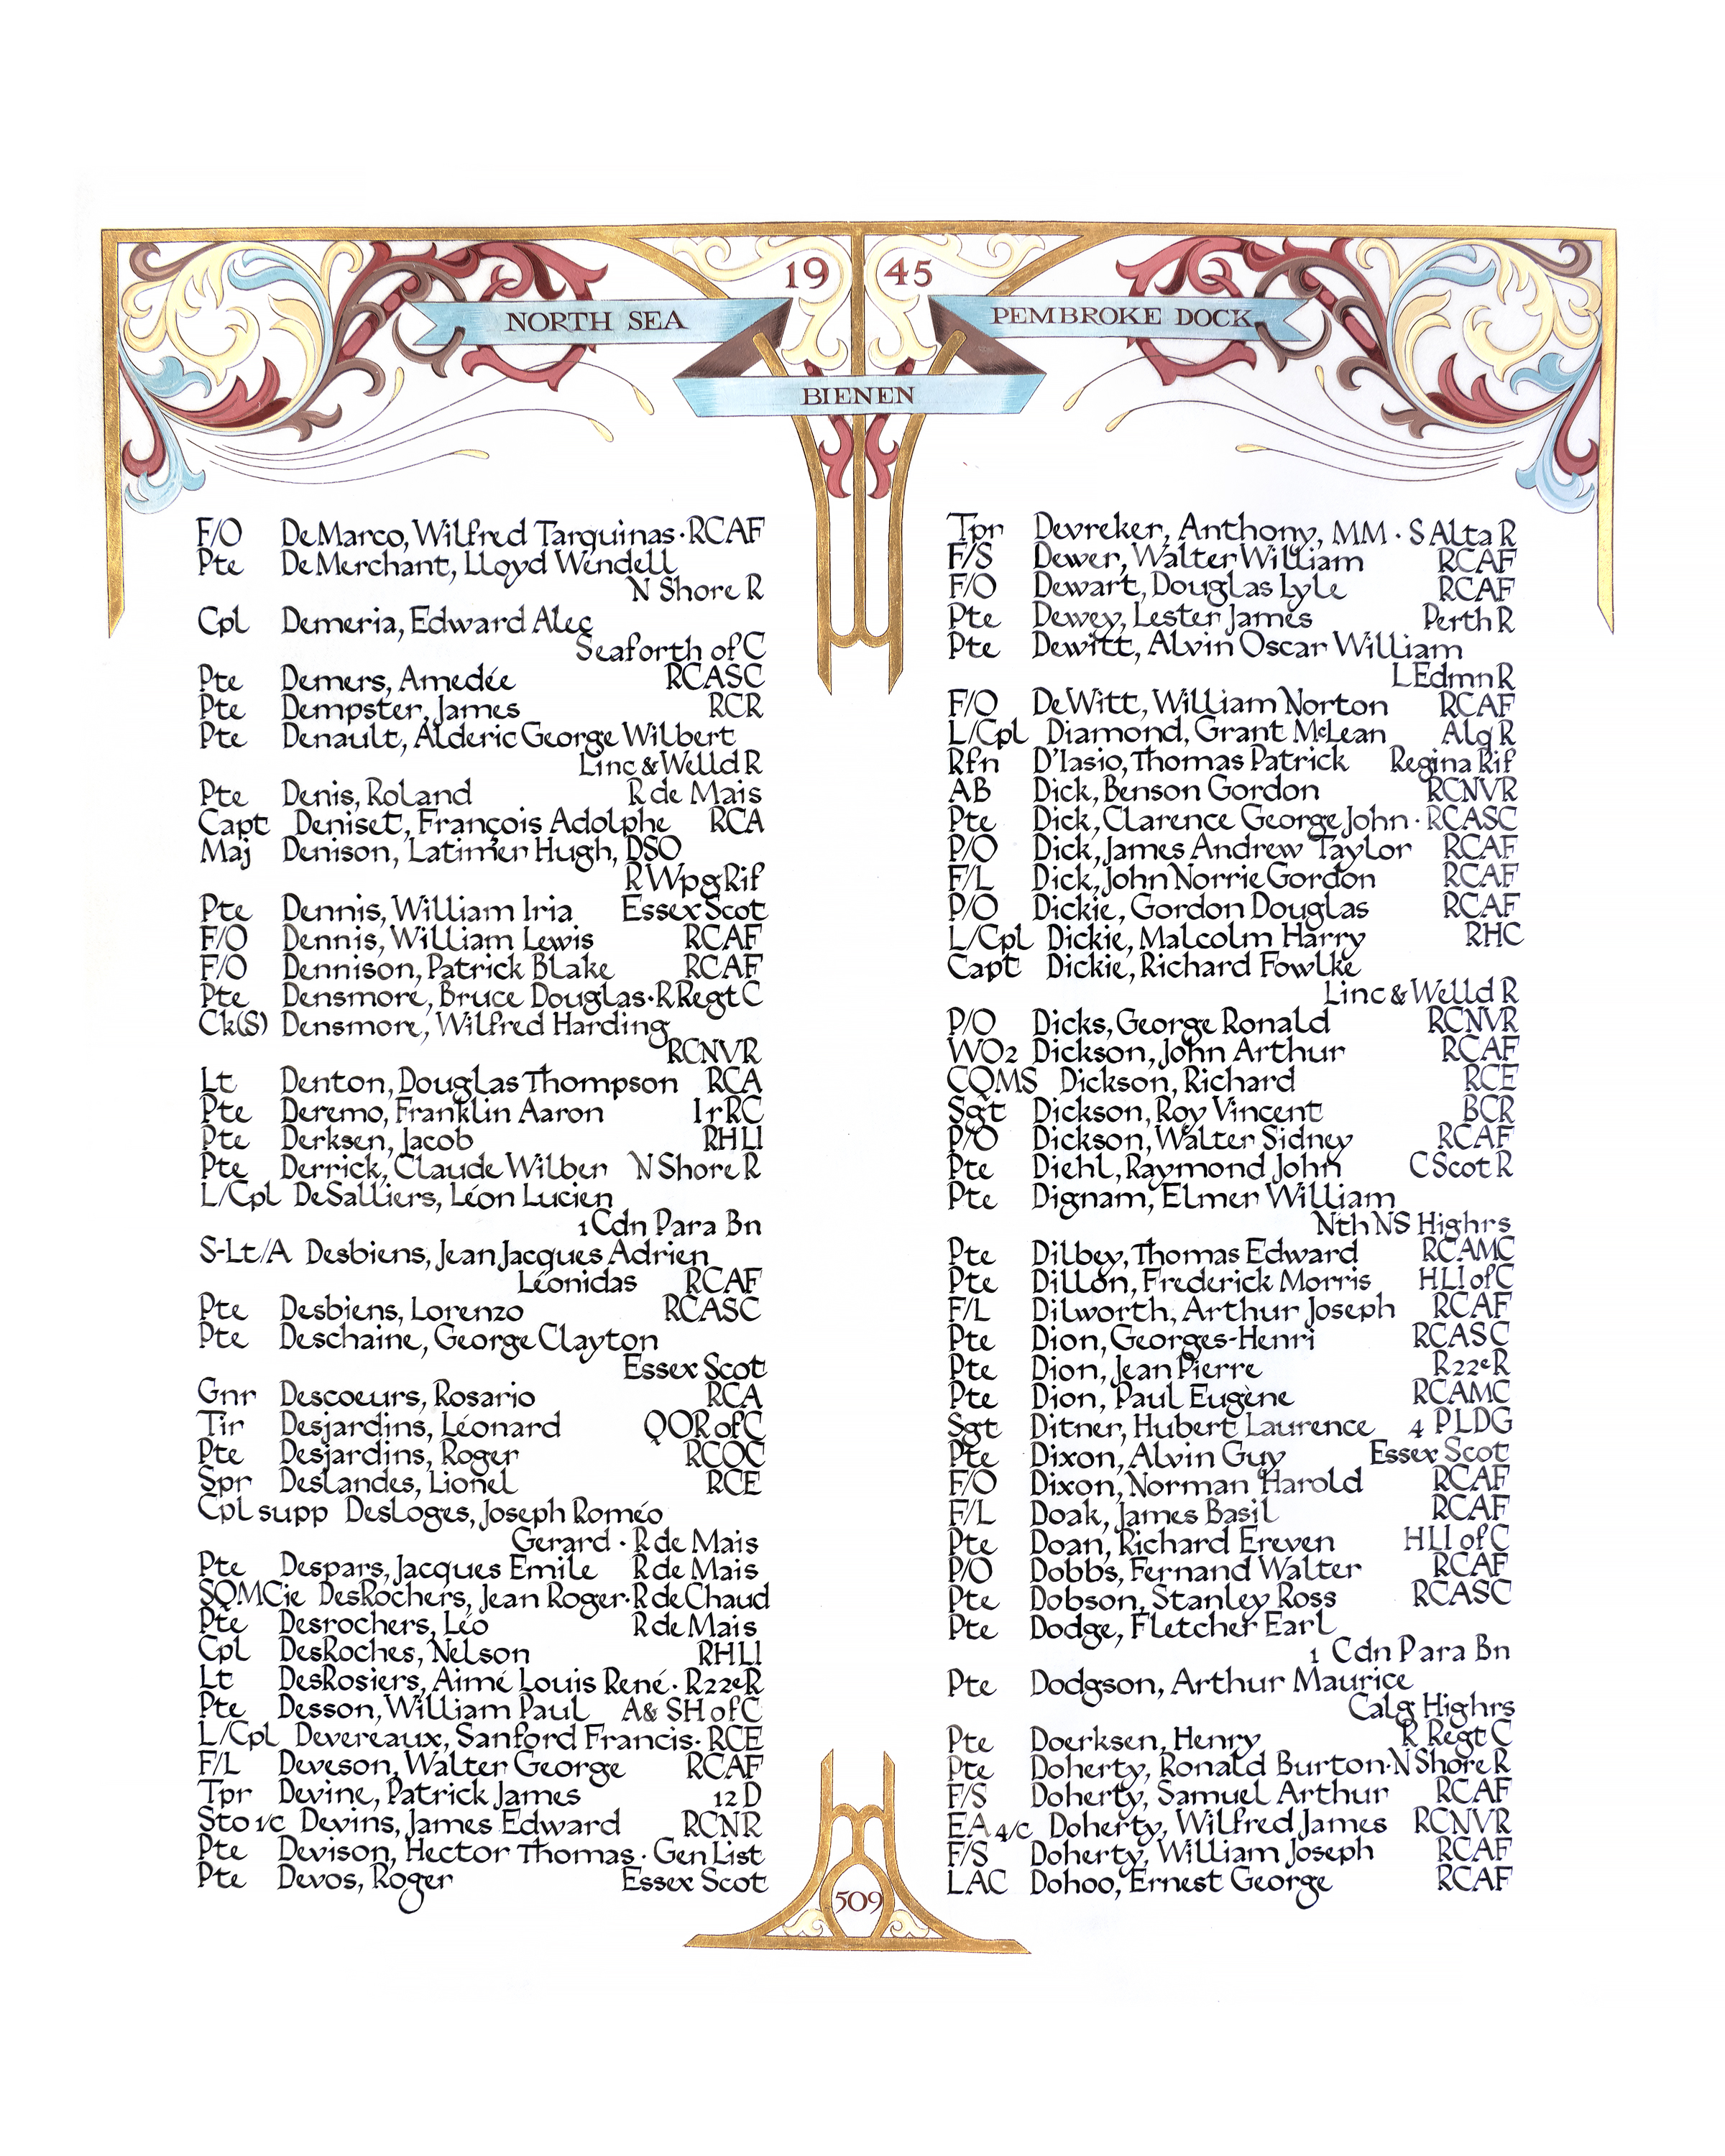 19 45
NORTH SEA
PEMBROKE DOCK
BIENEN
F/O DeMarco, Wilfred Tarquinas · RCAF
Pte DeMerchant, Lloyd Wendell
N Shore R
Cpl Demeria, Edward Alec
Seaforth of C
Pte Demers, Amedée RCASC
Pte Dempster, James RCR
Pte Denault, Alderic George Wilbert
Linc & Welld R
Pte Denis, Roland R de Mais
Capt Deniset, François Adolphe RCA
Maj Denison, Latimer Hugh, DSO
R Wpg Rif
Pte Dennis, William Iria Essex Scot
F/O Dennis, William Lewis RCAF
F/O Dennison, Patrick Blake RCAF
Pte Densmore, Bruce Douglas · R Regt C
Ck(S) Densmore, Wilfred Harding
RCNVR
Lt Denton, Douglas Thompson RCA
Pte Deremo, Franklin Aaron IrRC
Pte Derksen, Jacob RHLI
Pte Derrick, Claude Wilber N Shore R
L/Cpl DeSalliers, Léon Lucien
1 Cdn Para Bn
S-Lt/A Desbiens, Jean Jacques Adrien
Léonidas RCAF
Pte Desbiens, Lorenzo RCASC
Pte Deschaine, George Clayton
Essex Scot
Gnr Descoeurs, Rosario RCA
Tir Desjardins, Léonard QOR of C
Pte Desjardins, Roger RCOC
Spr Deslandes, Lionel RCE
Cpl supp Desloges, Joseph Roméo
Gerard · R de Mais
Pte Despars, Jacques Emile R de Mais
SQMCie DesRochers, Jean Roger · R de Chaud
Pte Desrochers, Léo R de Mais
Cpl DesRoches, Nelson RHLI
Lt DesRosiers, Aimé Louis René · R22eR
Pte Desson, William Paul A & SH of C
L/Cpl Devereaux, Sanford Francis · RCE
F/L Deveson, Walter George RCAF
Tpr Devine, Patrick James 12 D
Sto 1/c Devins, James Edward RCNR
Pte Devison, Hector Thomas · Gen List
Pte Devos, Roger Essex Scot
Tpr Devreker, Anthony, MM · S Alta R
F/S Dewer, Walter William RCAF
F/O Dewart, Douglas Lyle RCAF
Pte Dewey, Lester James Perth R
Pte Dewitt, Alvin Oscar William
L Edmn R
F/O DeWitt, William Norton RCAF
L/Cpl Diamond, Grant McLean Alq R
Rfn D'Iasio, Thomas Patrick Regina Rif
AB Dick, Benson Gordon RCNVR
Pte Dick, Clarence George John · RCASC
P/O Dick, James Andrew Taylor RCAF
F/L Dick, John Norrie Gordon RCAF
P/O Dickie, Gordon Douglas RCAF
L/Cpl Dickie, Malcolm Harry RHC
Capt Dickie, Richard Fowlke
Linc & Welld R
P/O Dicks, George Ronald RCNVR
WO2 Dickson, John Arthur RCAF
CQMS Dickson, Richard RCE
Sgt Dickson, Roy Vincent BCR
P/O Dickson, Walter Sidney RCAF
Pte Diehl, Raymond John C Scot R
Pte Dignam, Elmer William
Nth NS Highrs
Pte Dilbey, Thomas Edward RCAMC
Pte Dillon, Frederick Morris HLI of C
F/L Dilworth, Arthur Joseph RCAF
Pte Dion, Georges-Henri RCASC
Pte Dion, Jean Pierre R22eR
Pte Dion, Paul Eugène RCAMC
Sgt Ditner, Hubert Laurence 4 PLDG
Pte Dixon, Alvin Guy Essex Scot
F/O Dixon, Norman Harold RCAF
F/L Doak, James Basil RCAF
Pte Doan, Richard Ereven HLI of C
P/O Dobbs, Fernand Walter RCAF
Pte Dobson, Stanley Ross RCASC
Pte Dodge, Fletcher Earl
1 Cdn Para Bn
Pte Dodgson, Arthur Maurice
Calg Highrs
Pte Doerksen, Henry R Regt C
Pte Doherty, Ronald Burton · N Shore R
F/S Doherty, Samuel Arthur RCAF
EA 4/c Doherty, Wilfred James RCNVR
F/S Doherty, William Joseph RCAF
LAC Dohoo, Ernest George RCAF
509